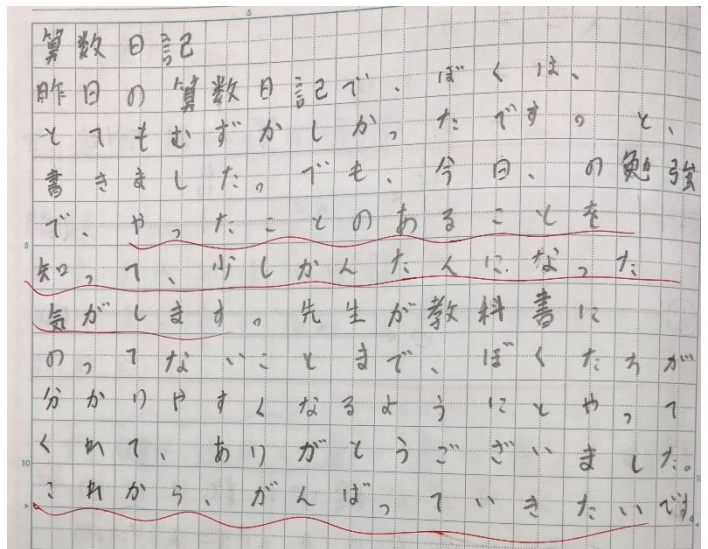 5
算数日記
昨日の算数日記で、ぼくは、
とてもむずかしかったです。と、
書きました。でも、今日、の勉強
で、やったことのあることを
5
知って、少しかんたんになった
気がします。先生が教科書に
のってないことまで、ぼくたちが
分かりやすくなるようにとやって
くれて、ありがとうございました。
10
これから、がんばっていきたいです。